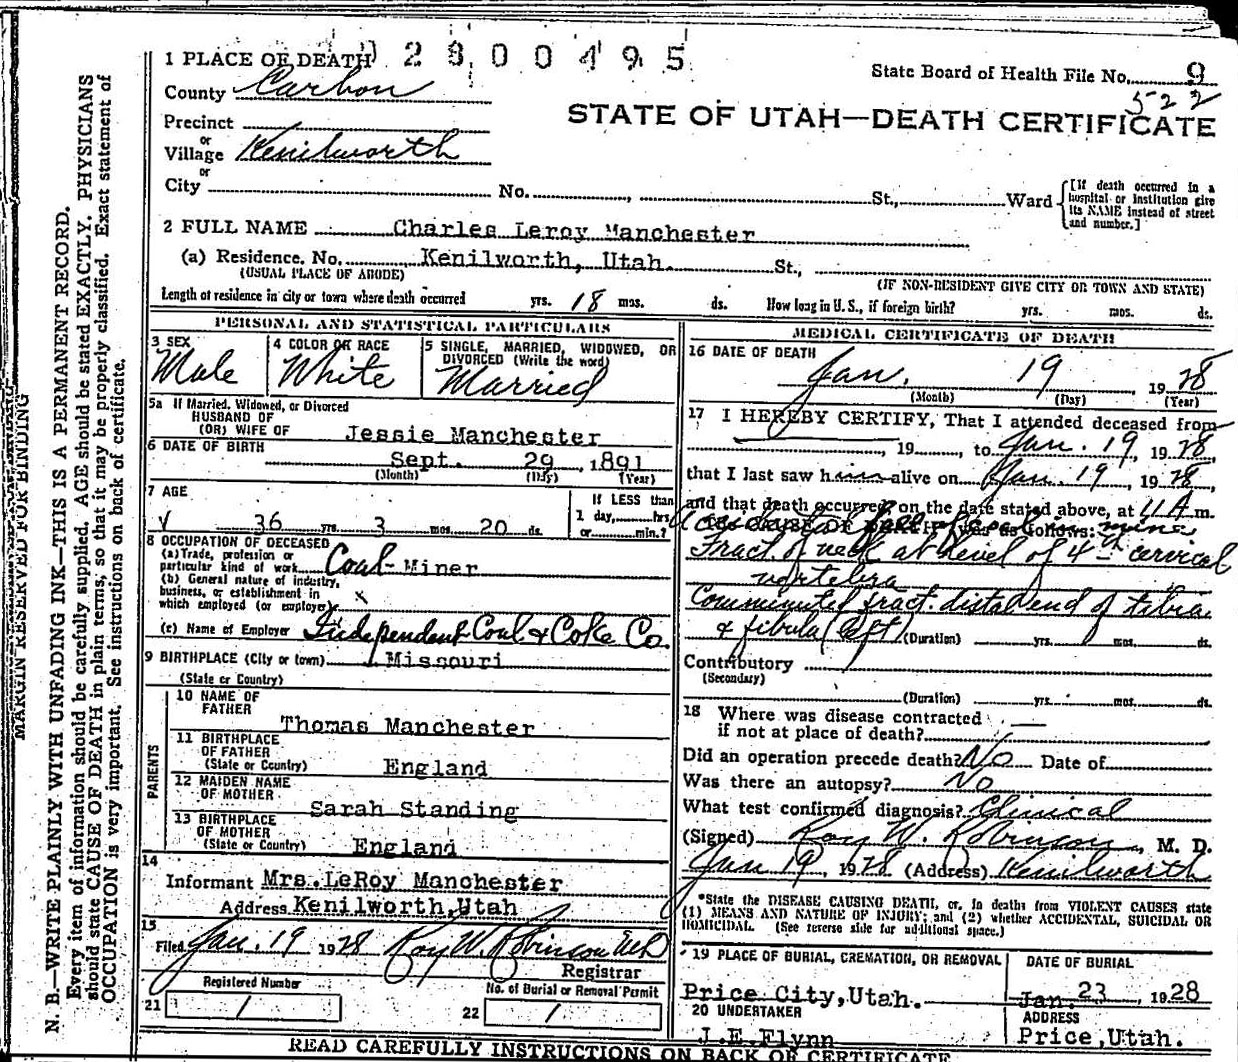 1 PLACE OF DEATH 02800495
State Board of Health File No. 9
522
County Carbon
STATE OF UTAH—DEATH CERTIFICATE
Precinct
or
Village Kenilworth
or
City No. St., Ward
[If death occurred in a hospital or institution give its NAME instead of street and number.]
2 FULL NAME Charles Leroy Manchester
(a) Residence. No. Kenilworth, Utah. St.,
(USUAL PLACE OF ABODE) (IF NON-RESIDENT GIVE CITY OR TOWN AND STATE)
Length of residence in city or town where death occurred yrs. 18 mos. ds. How long in U. S., if foreign birth? yrs. mos. ds.
PERSONAL AND STATISTICAL PARTICULARS
3 SEX
Male
4 COLOR OR RACE
White
5 SINGLE, MARRIED, WIDOWED, OR
DIVORCED (Write the word)
Married
5a If Married, Widowed, or Divorced
HUSBAND OF
(OR) WIFE OF Jessie Manchester
6 DATE OF BIRTH
Sept. 29, 1891
(Month) (Day) (Year)
7 AGE
36 yrs. 3 mos. 20 ds.
If LESS than
1 day, hrs.
or min.?
8 OCCUPATION OF DECEASED
(a) Trade, profession or
particular kind of work Coal-Miner
(b) General nature of industry,
business, or establishment in
which employed (or employer) x
(c) Name of Employer Independent Coal & Coke Co.
9 BIRTHPLACE (City or town) Missouri
(State or Country)
PARENTS
10 NAME OF
FATHER
Thomas Manchester
11 BIRTHPLACE
OF FATHER
(State or Country) England
12 MAIDEN NAME
OF MOTHER
Sarah Standing
13 BIRTHPLACE
OF MOTHER
(State or Country) England
14
Informant Mrs. LeRoy Manchester
Address Kenilworth, Utah
15
Filed Jan. 19 1928 Roy W. Robinson MD
Registrar
Registered Number
21 1
No. of Burial or Removal Permit
22 1
MEDICAL CERTIFICATE OF DEATH
16 DATE OF DEATH
Jan. 19, 1928
(Month) (Day) (Year)
17 I HEREBY CERTIFY, That I attended deceased from
, 19 , to Jan. 19, 1928,
that I last saw him alive on Jan. 19, 1928,
and that death occurred on the date stated above, at 11 A.m.
The CAUSE OF DEATH* was as follows:
fall of coal in mine
Fract. of neck at level of 4th cervical
vertebra
Comminuted fract. distal end of tibia
& fibula (left) (Duration) yrs. mos. ds.
Contributory
(Secondary)
(Duration) yrs. mos. ds.
18 Where was disease contracted
if not at place of death?
Did an operation precede death? No Date of
Was there an autopsy? No
What test confirmed diagnosis? Clinical
(Signed) Roy W. Robinson, M. D.
Jan 19, 1928 (Address) Kenilworth
*State the DISEASE CAUSING DEATH, or, in deaths from VIOLENT CAUSES state
(1) MEANS AND NATURE OF INJURY; and (2) whether ACCIDENTAL, SUICIDAL OR
HOMICIDAL. (See reverse side for additional space.)
19 PLACE OF BURIAL, CREMATION, OR REMOVAL
Price City, Utah.
DATE OF BURIAL
Jan. 23, 1928
20 UNDERTAKER
J.E. Flynn
ADDRESS
Price, Utah.
READ CAREFULLY INSTRUCTIONS ON BACK OF CERTIFICATE
MARGIN RESERVED FOR BINDING
N. B.—WRITE PLAINLY WITH UNFADING INK—THIS IS A PERMANENT RECORD.
Every item of information should be carefully supplied. AGE should be stated EXACTLY. PHYSICIANS
should state CAUSE OF DEATH in plain terms, so that it may be properly classified. Exact statement of
OCCUPATION is very important. See instructions on back of certificate.